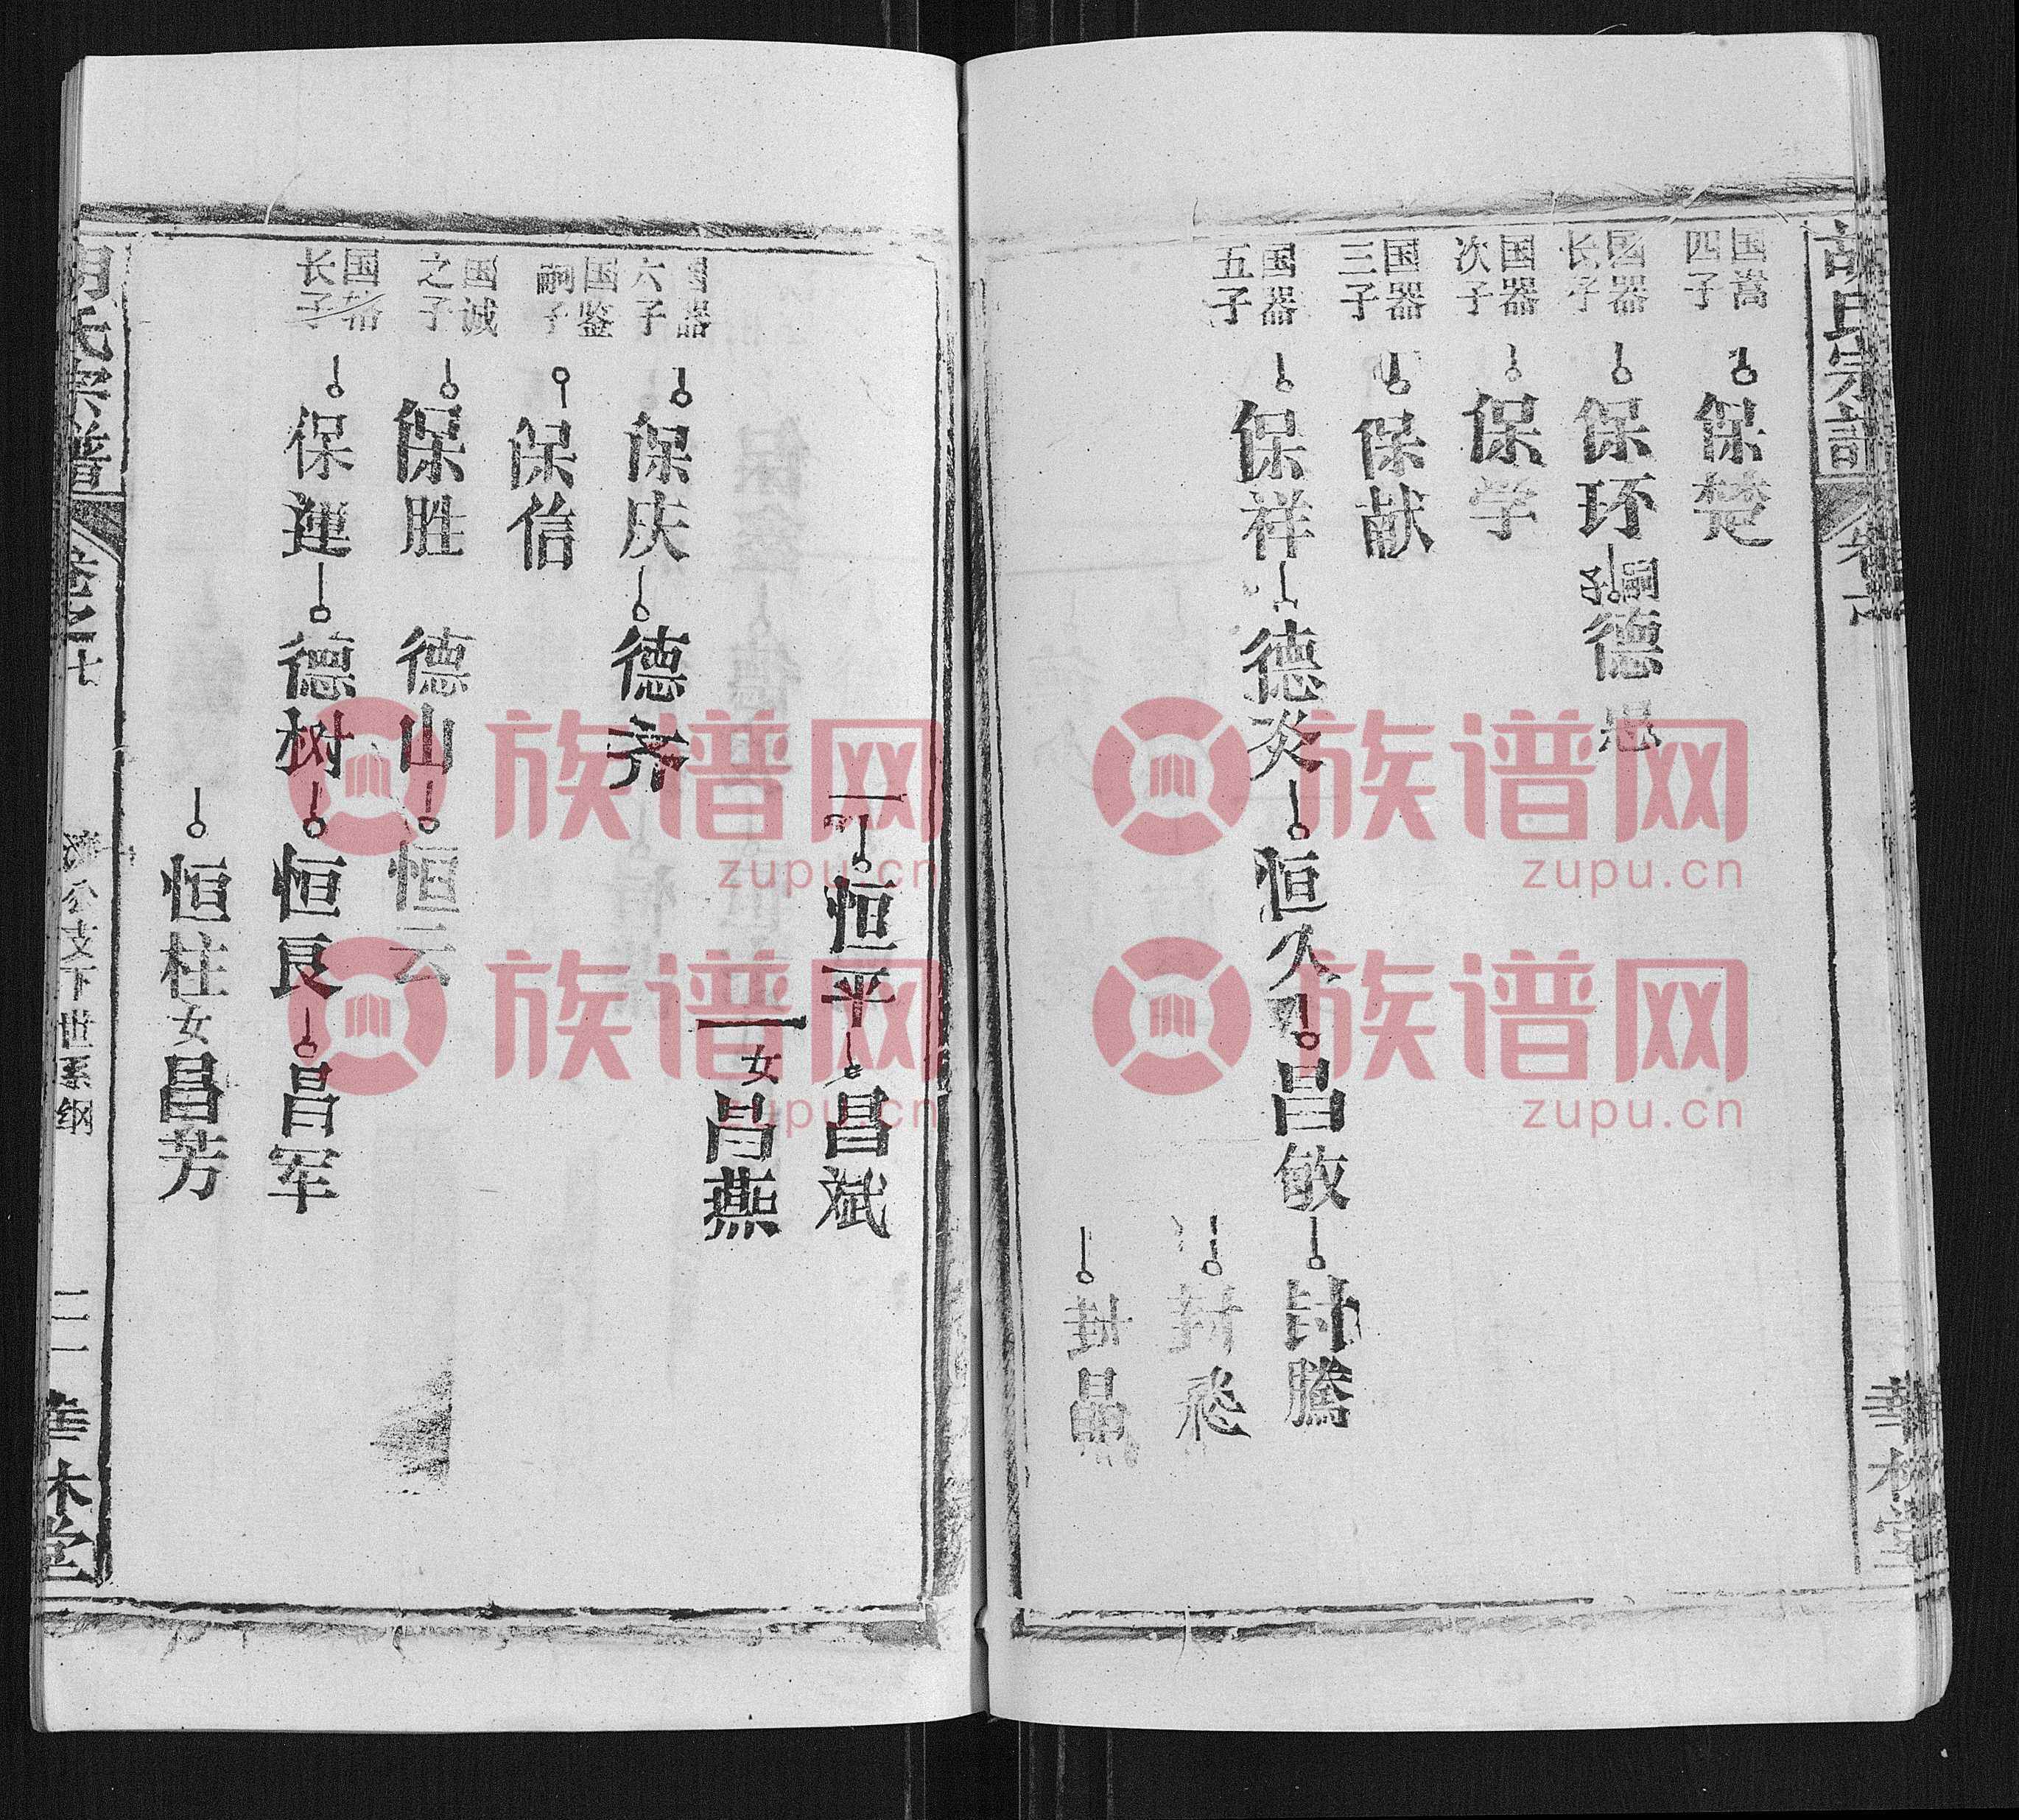 胡氏宗譜
国嵩四子
保楚
国器长子
保环
嗣子
德忠
国器次子
保学
国器三子
保献
国器五子
保祥
德炎
恒久
昌敏
封腾
封飛
封晶
恒平
昌斌
女昌燕
国器六子
保庆
德齐
国鉴嗣子
保信
国诚之子
保胜
德山
恒云
长子
保運
德树
恒良
昌军
恒柱
女昌芳
氏宗譜
卷之十
公支下世系纲
二一
華林堂
華林堂
族谱网
zupu.cn
族谱网
zupu.cn
族谱网
zupu.cn
族谱网
zupu.cn